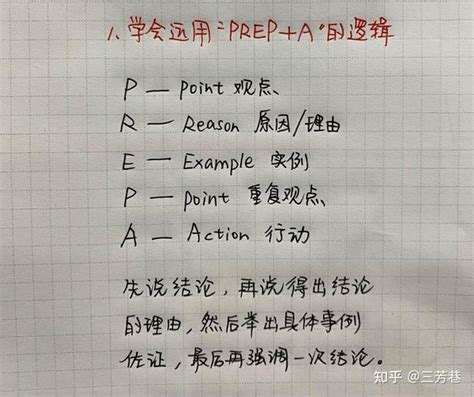 1. 学会运用“PREP+A”的逻辑
P — Point 观点、
R — Reason 原因/理由
E — Example 实例
P — point 重复观点、
A — Action 行动
先说结论，再说得出结论
的理由，然后举出具体事例
佐证，最后再强调一次结论。
知乎 @三芳巷